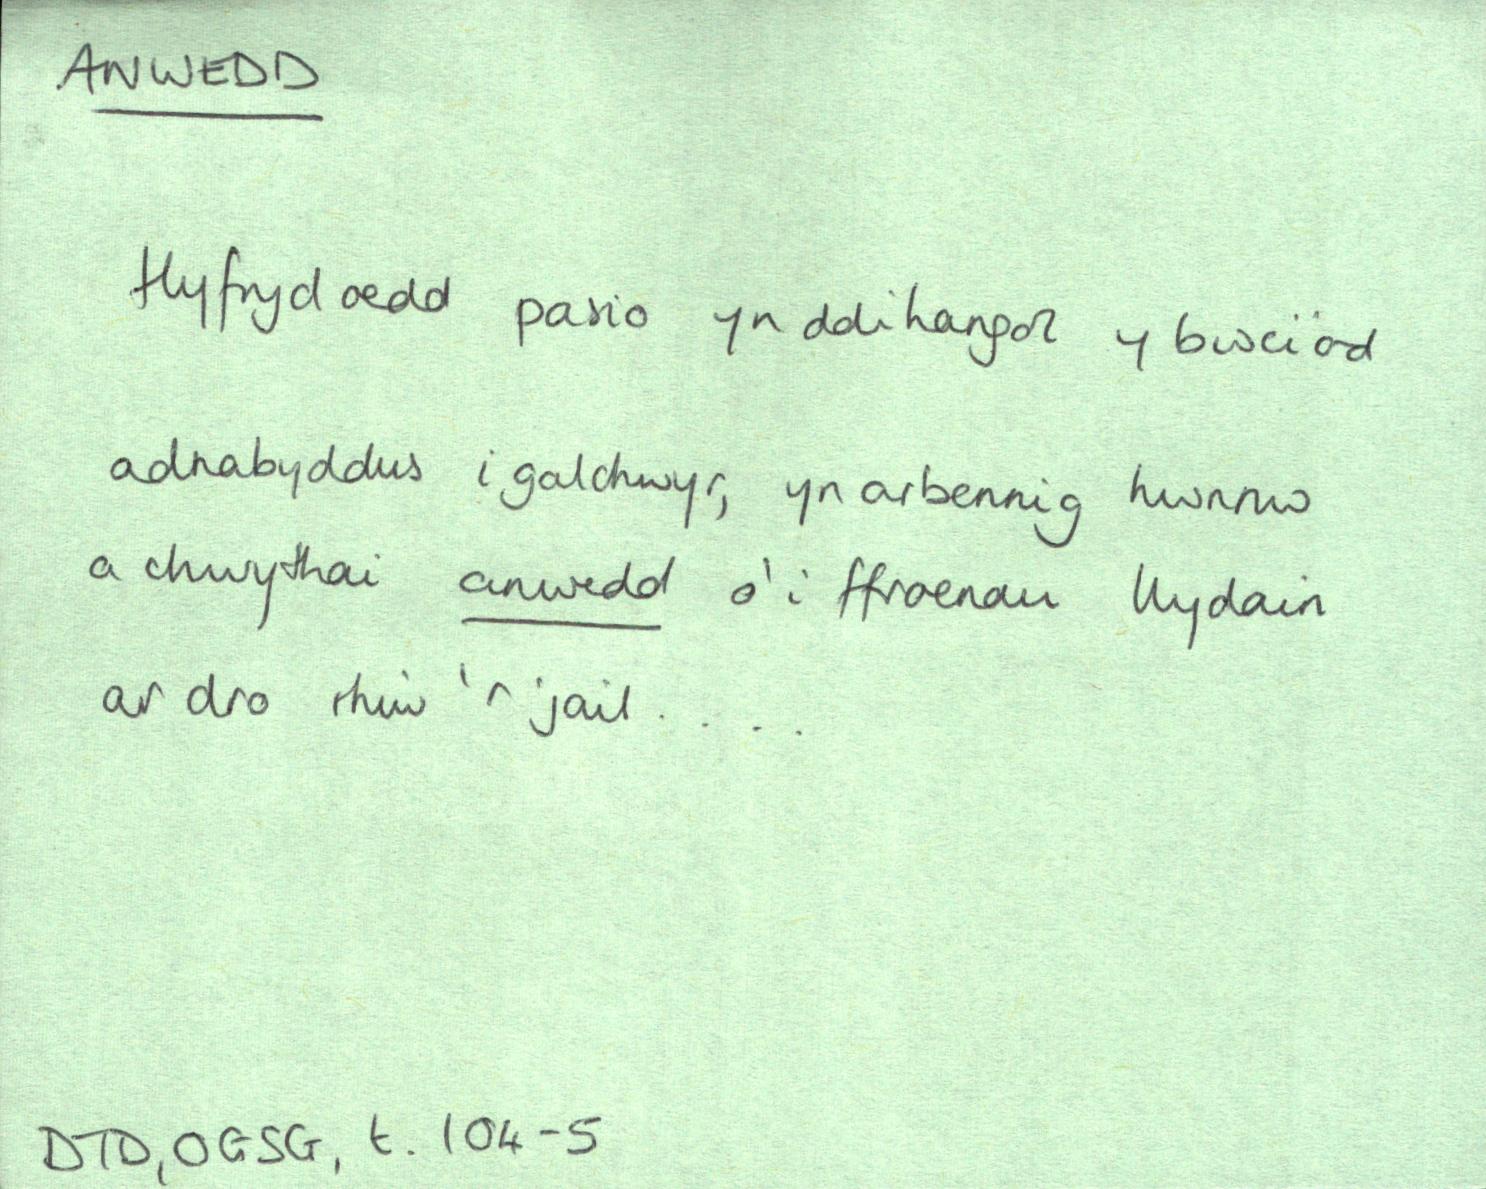 ANWEDD
Hyfryd oedd pasio yn ddihangol y bwcïod
adnabyddus i galchwyr, yn arbennig hwnnw
a chwythai anwedd o'i ffroenau llydain
ar dro rhiw 'r jail . . . .
DTD, OGSG, t. 104-5